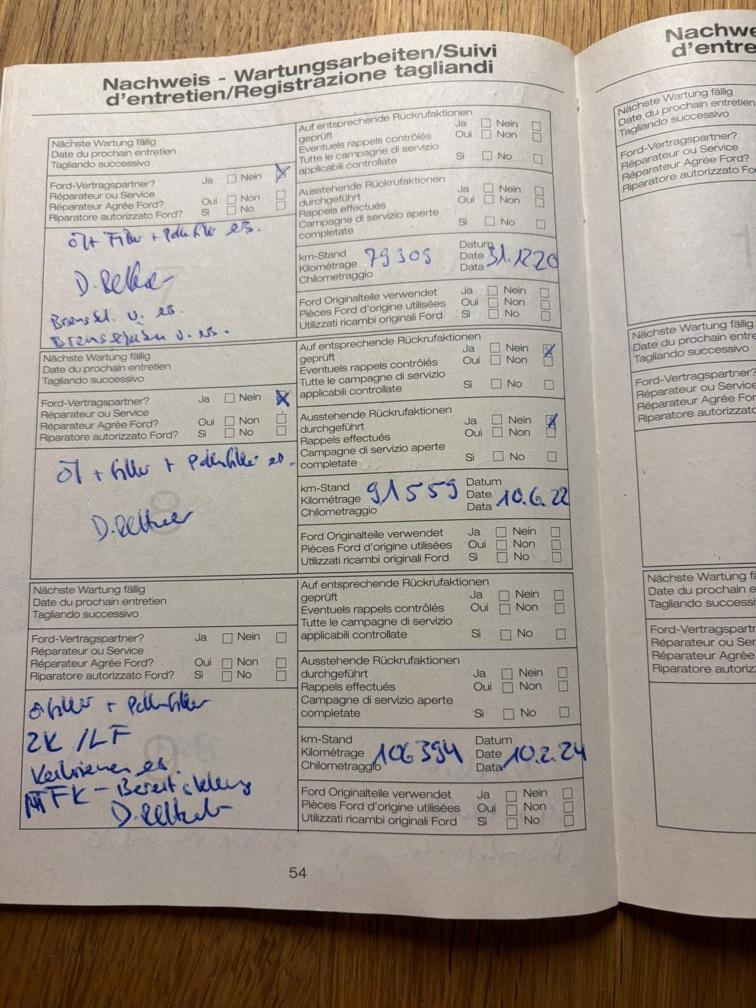 Nachweis - Wartungsarbeiten/Suivi
d'entretien/Registrazione tagliandi
Nächste Wartung fällig
Date du prochain entretien
Tagliando successivo
Ford-Vertragspartner? Ja Nein
Réparateur ou Service
Réparateur Agrée Ford? Oui Non
Riparatore autorizzato Ford? Si No
Öl + Filter + Pollenfilter es.
Auf entsprechende Rückrufaktionen
geprüft Ja Nein
Eventuels rappels contrôlés Oui Non
Tutte le campagne di servizio
applicabili controllate Si No
Ausstehende Rückrufaktionen
durchgeführt Ja Nein
Rappels effectués Oui Non
Campagne di servizio aperte
completate Si No
km-Stand
Kilométrage 79309
Chilometraggio
Datum
Date 31.12.20
Data
Ford Originalteile verwendet Ja Nein
Pièces Ford d'origine utilisées Oui Non
Utilizzati ricambi originali Ford Si No
Nächste Wartung fällig
Date du prochain entretien
Tagliando successivo
Ford-Vertragspartner? Ja Nein
Réparateur ou Service
Réparateur Agrée Ford? Oui Non
Riparatore autorizzato Ford? Si No
Öl + Filter + Pollenfilter es.
Auf entsprechende Rückrufaktionen
geprüft Ja Nein
Eventuels rappels contrôlés Oui Non
Tutte le campagne di servizio
applicabili controllate Si No
Ausstehende Rückrufaktionen
durchgeführt Ja Nein
Rappels effectués Oui Non
Campagne di servizio aperte
completate Si No
km-Stand
Kilométrage 91559
Chilometraggio
Datum
Date 10.6.22
Data
Ford Originalteile verwendet Ja Nein
Pièces Ford d'origine utilisées Oui Non
Utilizzati ricambi originali Ford Si No
Nächste Wartung fällig
Date du prochain entretien
Tagliando successivo
Ford-Vertragspartner? Ja Nein
Réparateur ou Service
Réparateur Agrée Ford? Oui Non
Riparatore autorizzato Ford? Si No
Ölfilter + Pollenfilter
ZK / LF
es.
MFK - Bereitstellung
Auf entsprechende Rückrufaktionen
geprüft Ja Nein
Eventuels rappels contrôlés Oui Non
Tutte le campagne di servizio
applicabili controllate Si No
Ausstehende Rückrufaktionen
durchgeführt Ja Nein
Rappels effectués Oui Non
Campagne di servizio aperte
completate Si No
km-Stand
Kilométrage 106394
Chilometraggio
Datum
Date 10.2.24
Data
Ford Originalteile verwendet Ja Nein
Pièces Ford d'origine utilisées Oui Non
Utilizzati ricambi originali Ford Si No
54
Nachwe
d'entre
Nächste Wartung fällig
Date du prochain entretien
Tagliando successivo
Ford-Vertragspartner?
Réparateur ou Service
Réparateur Agrée Ford?
Riparatore autorizzato Fo
Nächste Wartung fällig
Date du prochain entre
Tagliando successivo
Ford-Vertragspartner?
Réparateur ou Service
Réparateur Agrée For
Riparatore autorizzato
Nächste Wartung fä
Date du prochain e
Tagliando successi
Ford-Vertragspartr
Réparateur ou Ser
Réparateur Agrée
Riparatore autoriz